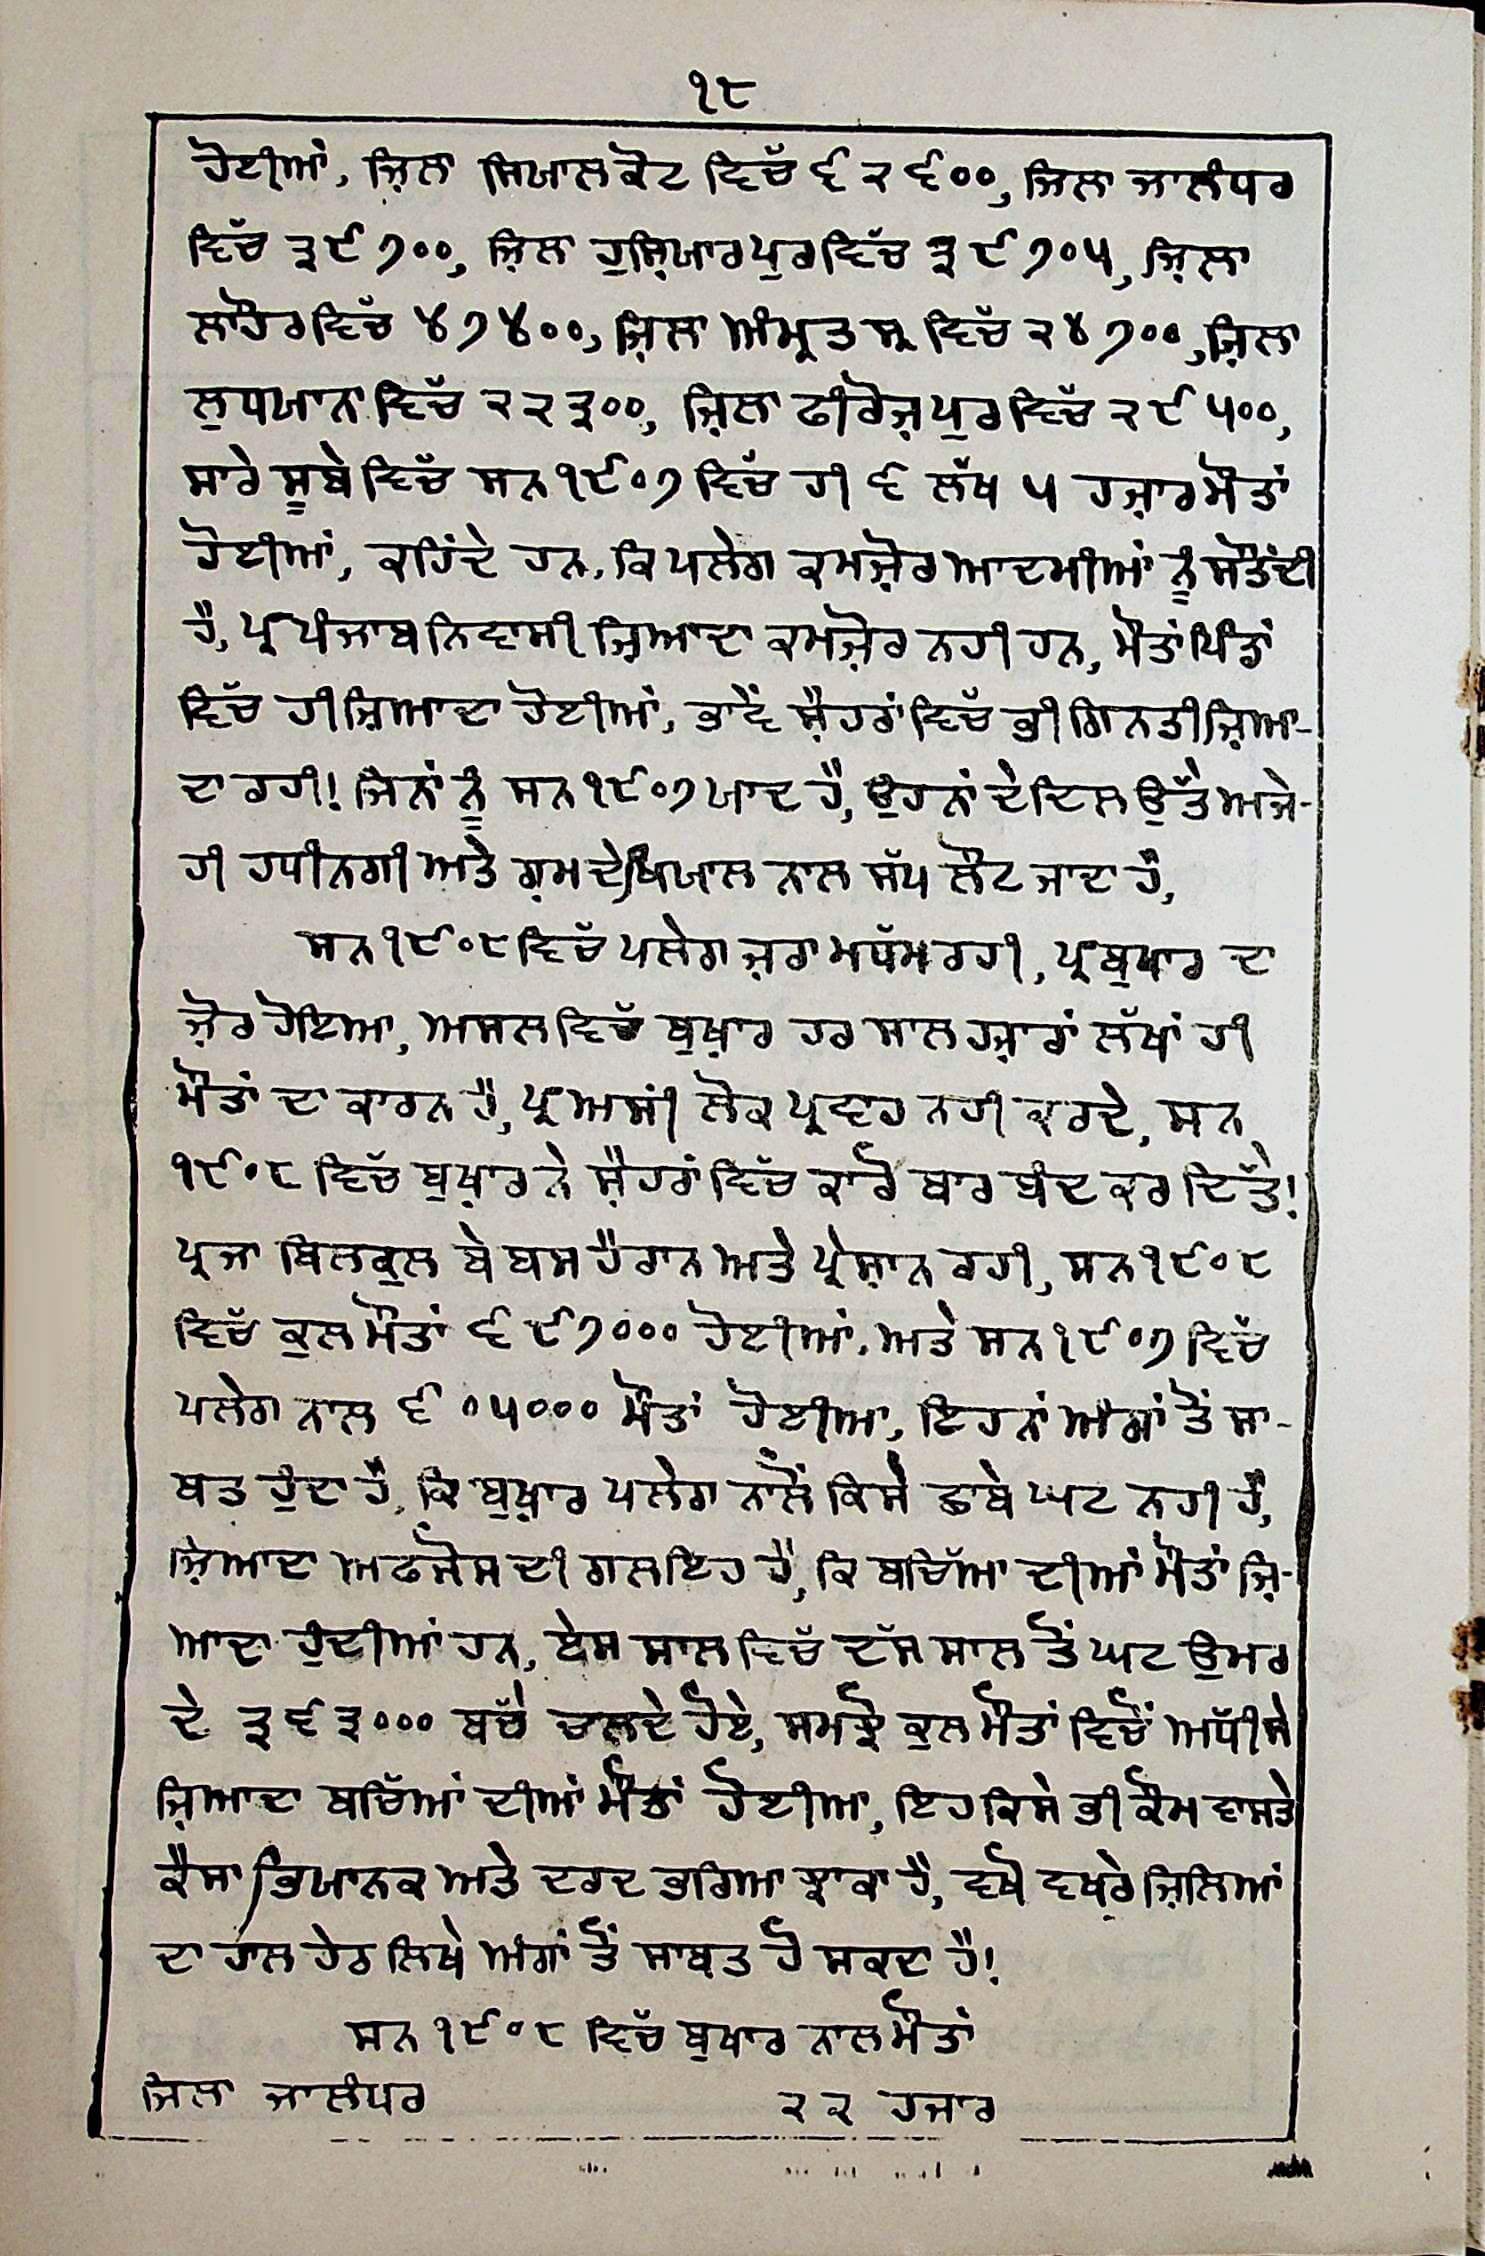 ੧੮
ਹੋਈਆਂ, ਜ਼ਿਲਾ ਸਿਯਾਲਕੋਟ ਵਿੱਚ ੬੨੬੦੦, ਜਿਲਾ ਜਾਲੰਧਰ
ਵਿੱਚ ੩੯੭੦੦, ਜ਼ਿਲਾ ਹੁਸ਼ਿਯਾਰਪੁਰ ਵਿੱਚ ੩੯੭੦੫, ਜ਼ਿਲਾ
ਲਾਹੌਰ ਵਿੱਚ ੪੭੪੦੦, ਜ਼ਿਲਾ ਅੰਮ੍ਰਤਸ੍ਰ ਵਿੱਚ ੨੪੭੦੦, ਜ਼ਿਲਾ
ਲੁਧਯਾਨਾ ਵਿੱਚ ੨੨੩੦੦, ਜ਼ਿਲਾ ਫੀਰੋਜ਼ਪੁਰ ਵਿੱਚ ੨੯੫੦੦,
ਸਾਰੇ ਸੂਬੇ ਵਿੱਚ ਸਨ ੧੯੦੭ ਵਿੱਚ ਹੀ ੬ ਲੱਖ ੫ ਹਜ਼ਾਰ ਮੌਤਾਂ
ਹੋਈਆਂ, ਕਹਿੰਦੇ ਹਨ, ਕਿ ਪਲੇਗ ਕਮਜ਼ੋਰ ਆਦਮੀਆਂ ਨੂੰ ਸੌਤੌਂਦੀ
ਹੈ, ਪ੍ਰ ਪੰਜਾਬ ਨਿਵਾਸੀ ਜ਼ਿਆਦਾ ਕਮਜ਼ੋਰ ਨਹੀ ਹਨ, ਮੌਤਾਂ ਪਿੰਡਾਂ
ਵਿੱਚ ਹੀ ਜ਼ਿਆਦਾ ਹੋਈਆਂ, ਭਾਵੇਂ ਸ਼ੈਹਰਾਂ ਵਿੱਚ ਭੀ ਗਿਨਤੀ ਜ਼ਿਆ-
ਦਾ ਰਹੀ! ਜਿਨਾਂ ਨੂੰ ਸਨ ੧੯੦੭ ਯਾਦ ਹੈ, ਉਹਨਾਂ ਦੇ ਦਿਲ ਉੱਤੇ ਅਜੇ-
ਹੀ ਹਧੀਨਗੀ ਅਤੇ ਗ਼ਮ ਦੇ ਖਿਯਾਲ ਨਾਲ ਸੱਪ ਲੌਟ ਜਾਦਾ ਹੈ,
ਸਨ ੧੯੦੮ ਵਿੱਚ ਪਲੇਗ ਜ਼ਰਾ ਮਧੱਮ ਰਹੀ, ਪ੍ਰ ਬੁਖਾਰ ਦਾ
ਜ਼ੋਰ ਹੋਇਆ, ਅਸਲ ਵਿੱਚ ਬੁਖ਼ਾਰ ਹਰ ਸਾਲ ਹਜ਼ਾਰਾਂ ਲੱਖਾਂ ਹੀ
ਮੌਤਾਂ ਦਾ ਕਾਰਨ ਹੈ, ਪ੍ਰ ਅਸੀਂ ਲੋਕ ਪ੍ਰਵਾਹ ਨਹੀ ਕਰਦੇ, ਸਨ
੧੯੦੮ ਵਿੱਚ ਬੁਖ਼ਾਰ ਨੇ ਸ਼ੈਹਰਾਂ ਵਿੱਚ ਕਾਰੋ ਬਾਰ ਬੰਦ ਕਰ ਦਿੱਤੇ!
ਪ੍ਰਜਾ ਬਿਲਕੁਲ ਬੇ ਬਸ ਹੈਰਾਨ ਅਤੇ ਪ੍ਰੇਸ਼ਾਨ ਰਹੀ, ਸਨ ੧੯੦੮
ਵਿੱਚ ਕੁਲ ਮੌਤਾਂ ੬੯੭੦੦੦ ਹੋਈਆਂ, ਅਤੇ ਸਨ ੧੯੦੭ ਵਿੱਚ
ਪਲੇਗ ਨਾਲ ੬੦੫੦੦੦ ਮੌਤਾਂ ਹੋਈਆ, ਇਹਨਾਂ ਅੰਗਾਂ ਤੋਂ ਸਾ-
ਬਤ ਹੁੰਦਾ ਹੈ, ਕਿ ਬੁਖ਼ਾਰ ਪਲੇਗ ਨਾਲੋਂ ਕਿਸੇ ਛਾਬੇ ਘਟ ਨਹੀ ਹੈ,
ਜ਼ਿਆਦਾ ਅਫਸੋਸ ਦੀ ਗਲ ਇਹ ਹੈ, ਕਿ ਬਚਿੱਆ ਦੀਆਂ ਮੌਤਾਂ ਜ਼ਿ-
ਆਦਾ ਹੁੰਦੀਆਂ ਹਨ, ਏਸ ਸਾਲ ਵਿੱਚ ਦੱਸ ਸਾਲ ਤੋਂ ਘਟ ਉਮਰ
ਦੇ ੩੬੩੦੦੦ ਬਚੇੱ ਚਾਲਦੇ ਹੋਏ, ਸਮਝੋ ਕੁਲ ਮੌਤਾਂ ਵਿਚੋਂ ਅਧੱੀ ਸੇ
ਜ਼ਿਆਦਾ ਬਚਿੱਆਂ ਦੀਆਂ ਮੌਤਾਂ ਹੋਈਆ, ਇਹ ਕਿਸੇ ਭੀ ਕੌਮ ਵਾਸਤੇ
ਕੈਸਾ ਭਿਯਾਨਕ ਅਤੇ ਦਰਦ ਭਰਿਆ ਝਾਕਾ ਹੈ, ਵਖੋ ਵਖਰੇ ਜ਼ਿਲਿਆਂ
ਦਾ ਹਾਲ ਹੇਠ ਲਿਖੇ ਅੰਗਾਂ ਤੋਂ ਸਾਬਤ ਹੋ ਸਕਦਾ ਹੈ!
ਸਨ ੧੯੦੮ ਵਿੱਚ ਬੁਖਾਰ ਨਾਲ ਮੌਤਾਂ
ਜਿਲਾ ਜਾਲੰਧਰ ੨੨ ਹਜਾਰ